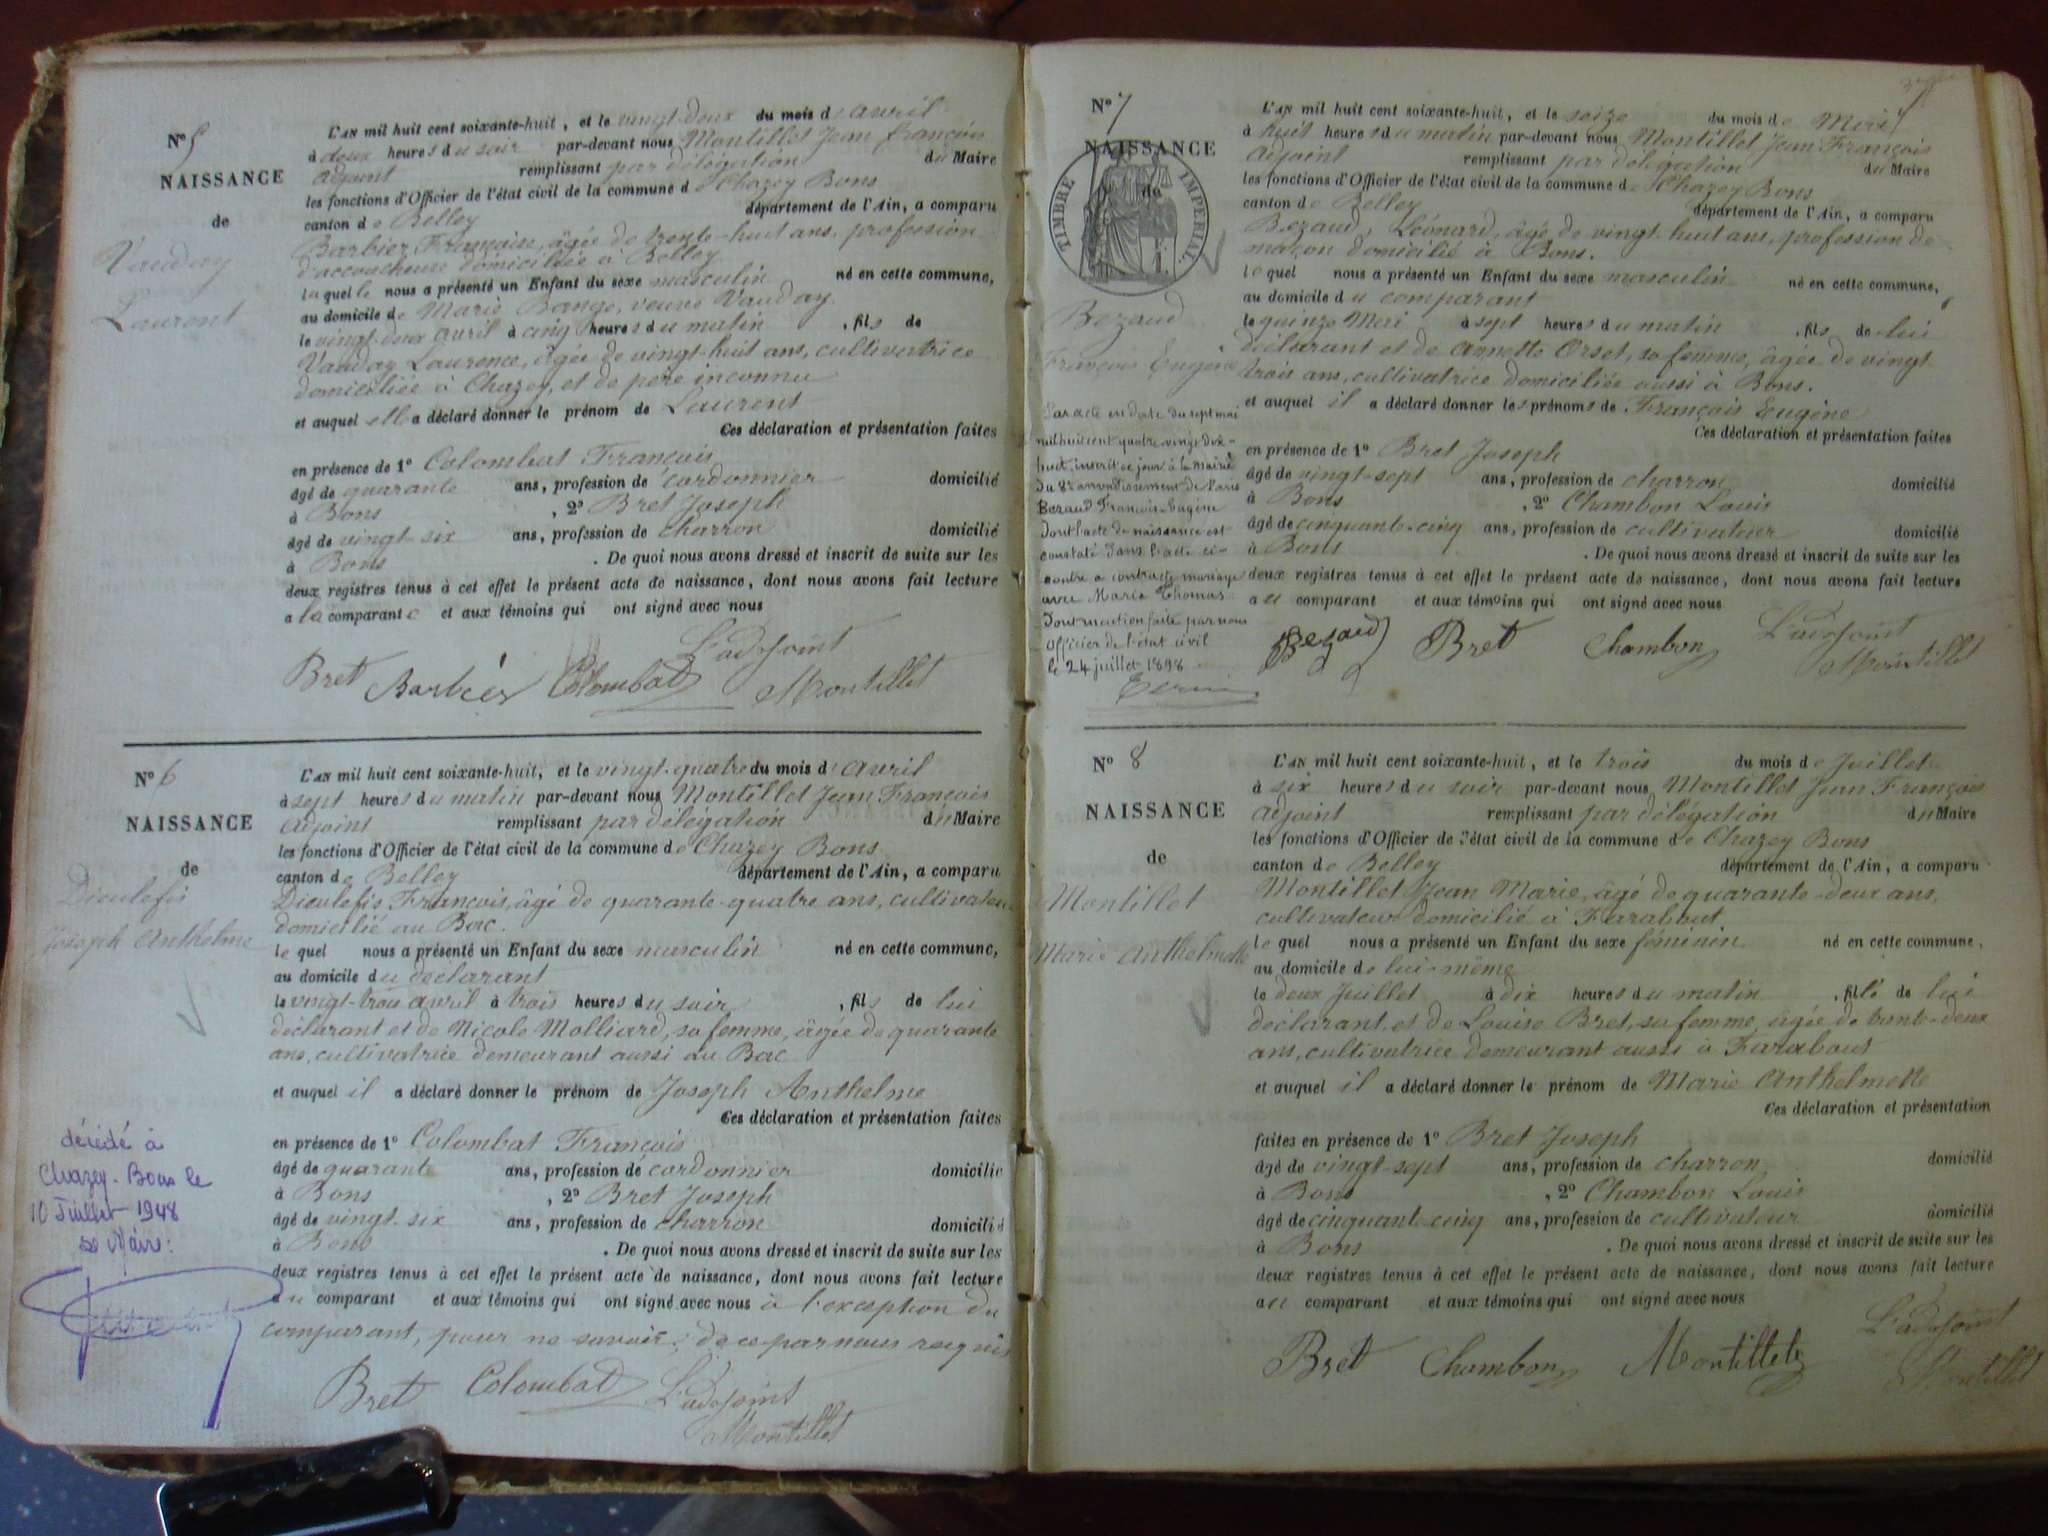 N° 5
NAISSANCE
de
Vauday
Laurent
L'AN mil huit cent soixante-huit, et le vingt-deux du mois de avril
à deux heures du soir par-devant nous Montillet Jean François
adjoint remplissant par délégation du Maire
les fonctions d'Officier de l'état civil de la commune de Chazey Bons
canton de Belley département de l'Ain, a comparu
Barbier, Françoise, âgée de trente-huit ans, profession
d'accoucheuse domiciliée à Belley
laquelle nous a présenté un Enfant du sexe masculin né en cette commune,
au domicile de Marie Bange, veuve Vauday
le vingt-deux avril à cinq heures du matin , fils de
Vauday Laurence, âgée de vingt-huit ans, cultivatrice
domiciliée à Chazey, et de père inconnu
et auquel elle a déclaré donner le prénom de Laurent
Ces déclaration et présentation faites
en présence de 1° Colombat François
âgé de quarante ans, profession de cordonnier domicilié
à Bons , 2° Bret Joseph
âgé de vingt-six ans, profession de charron domicilié
à Bons . De quoi nous avons dressé et inscrit de suite sur les
deux registres tenus à cet effet le présent acte de naissance, dont nous avons fait lecture
a la comparante et aux témoins qui ont signé avec nous
L'adjoint
Bret Barbier Colombat Montillet
N° 6
NAISSANCE
de
Dieulefis
Joseph Anthelme
décédé à
Chazey-Bons le
10 Juillet 1948
Le Maire:
L'AN mil huit cent soixante-huit, et le vingt-quatre du mois d'avril
à sept heures du matin par-devant nous Montillet Jean François
adjoint remplissant par délégation du Maire
les fonctions d'Officier de l'état civil de la commune de Chazey Bons
canton de Belley département de l'Ain, a comparu
Dieulefis, François, âgé de quarante-quatre ans, cultivateur
domicilié au Bac.
lequel nous a présenté un Enfant du sexe masculin né en cette commune,
au domicile du déclarant
le vingt-trois avril à trois heures du soir , fils de lui
déclarant et de Nicole Molliard, sa femme, âgée de quarante
ans, cultivatrice demeurant aussi au Bac
et auquel il a déclaré donner le prénom de Joseph Anthelme
Ces déclaration et présentation faites
en présence de 1° Colombat François
âgé de quarante ans, profession de cordonnier domicilié
à Bons , 2° Bret Joseph
âgé de vingt-six ans, profession de charron domicilié
à Bons . De quoi nous avons dressé et inscrit de suite sur les
deux registres tenus à cet effet le présent acte de naissance, dont nous avons fait lecture
au comparant et aux témoins qui ont signé avec nous à l'exception du
comparant, pour ne savoir de ce par nous requis
Bret Colombat L'adjoint
Montillet
N° 7
NAISSANCE
de
TIMBRE IMPERIAL
Bezaud
François Eugène
Par acte en date du sept mai
mil huit cent quatre vingt dix-
huit, inscrit ce jour à la mairie
du 8e arrondissement de Paris
Bezaud François-Eugène
dont l'acte de naissance est
constaté dans l'acte ci-
contre a contracté mariage
avec Marie Thomas.
Dont mention faite par nous
Officier de l'état civil
le 24 juillet 1898
L'AN mil huit cent soixante-huit, et le seize du mois de Mai
à huit heures du matin par-devant nous Montillet Jean François
adjoint remplissant par délégation du Maire
les fonctions d'Officier de l'état civil de la commune de Chazey Bons
canton de Belley département de l'Ain, a comparu
Bezaud, Léonard, âgé de vingt-huit ans, profession de
maçon domicilié à Bons.
lequel nous a présenté un Enfant du sexe masculin né en cette commune,
au domicile du comparant
le quinze Mai à sept heures du matin , fils de lui
déclarant et de Annette Orset, sa femme, âgée de vingt
trois ans, cultivatrice domiciliée aussi à Bons.
et auquel il a déclaré donner les prénoms de François Eugène
Ces déclaration et présentation faites
en présence de 1° Bret Joseph
âgé de vingt-sept ans, profession de charron domicilié
à Bons , 2° Chambon Louis
âgé de cinquante-cinq ans, profession de cultivateur domicilié
à Bons . De quoi nous avons dressé et inscrit de suite sur les
deux registres tenus à cet effet le présent acte de naissance, dont nous avons fait lecture
au comparant et aux témoins qui ont signé avec nous
Bezaud Bret Chambon L'adjoint
Montillet
N° 8
NAISSANCE
de
Montillet
Marie Anthelmette
L'AN mil huit cent soixante-huit, et le trois du mois de Juillet
à six heures du soir par-devant nous Montillet Jean François
adjoint remplissant par délégation du Maire
les fonctions d'Officier de l'état civil de la commune de Chazey Bons
canton de Belley département de l'Ain, a comparu
Montillet Jean Marie, âgé de quarante-deux ans,
cultivateur domicilié à Farabout
lequel nous a présenté un Enfant du sexe féminin né en cette commune,
au domicile de lui-même
le deux Juillet à dix heures du matin , fille de lui
déclarant et de Louise Bret, sa femme, âgée de trente-deux
ans, cultivatrice demeurant aussi à Farabout
et auquel il a déclaré donner le prénom de Marie Anthelmette
Ces déclaration et présentation
faites en présence de 1° Bret Joseph
âgé de vingt-sept ans, profession de charron domicilié
à Bons , 2° Chambon Louis
âgé de cinquante-cinq ans, profession de cultivateur domicilié
à Bons . De quoi nous avons dressé et inscrit de suite sur les
deux registres tenus à cet effet le présent acte de naissance, dont nous avons fait lecture
au comparant et aux témoins qui ont signé avec nous
L'adjoint
Bret Chambon Montillet Montillet